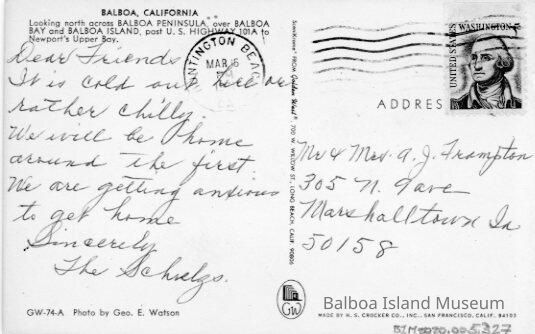 BALBOA, CALIFORNIA
Looking north across BALBOA PENINSULA, over BALBOA
BAY and BALBOA ISLAND, past U. S. HIGHWAY 101A to
Newport's Upper Bay.
Dear Friends
It is cold out here or
rather chilly.
We will be home
around the first
We are getting anxious
to get home
Sincerely
The Schulzs.
GW-74-A Photo by Geo. E. Watson
HUNTINGTON BEACH
MAR 15
PM
FROM Golden West
700 W. WILLOW ST., LONG BEACH, CALIF. 90806
UNITED STATES
WASHINGTON
ADDRES
Mr & Mrs. A. J. Frampton
305 N. 9 ave
Marshalltown Ia
50158
GW
Balboa Island Museum
MADE BY H. S. CROCKER CO., INC., SAN FRANCISCO, CALIF. 94103